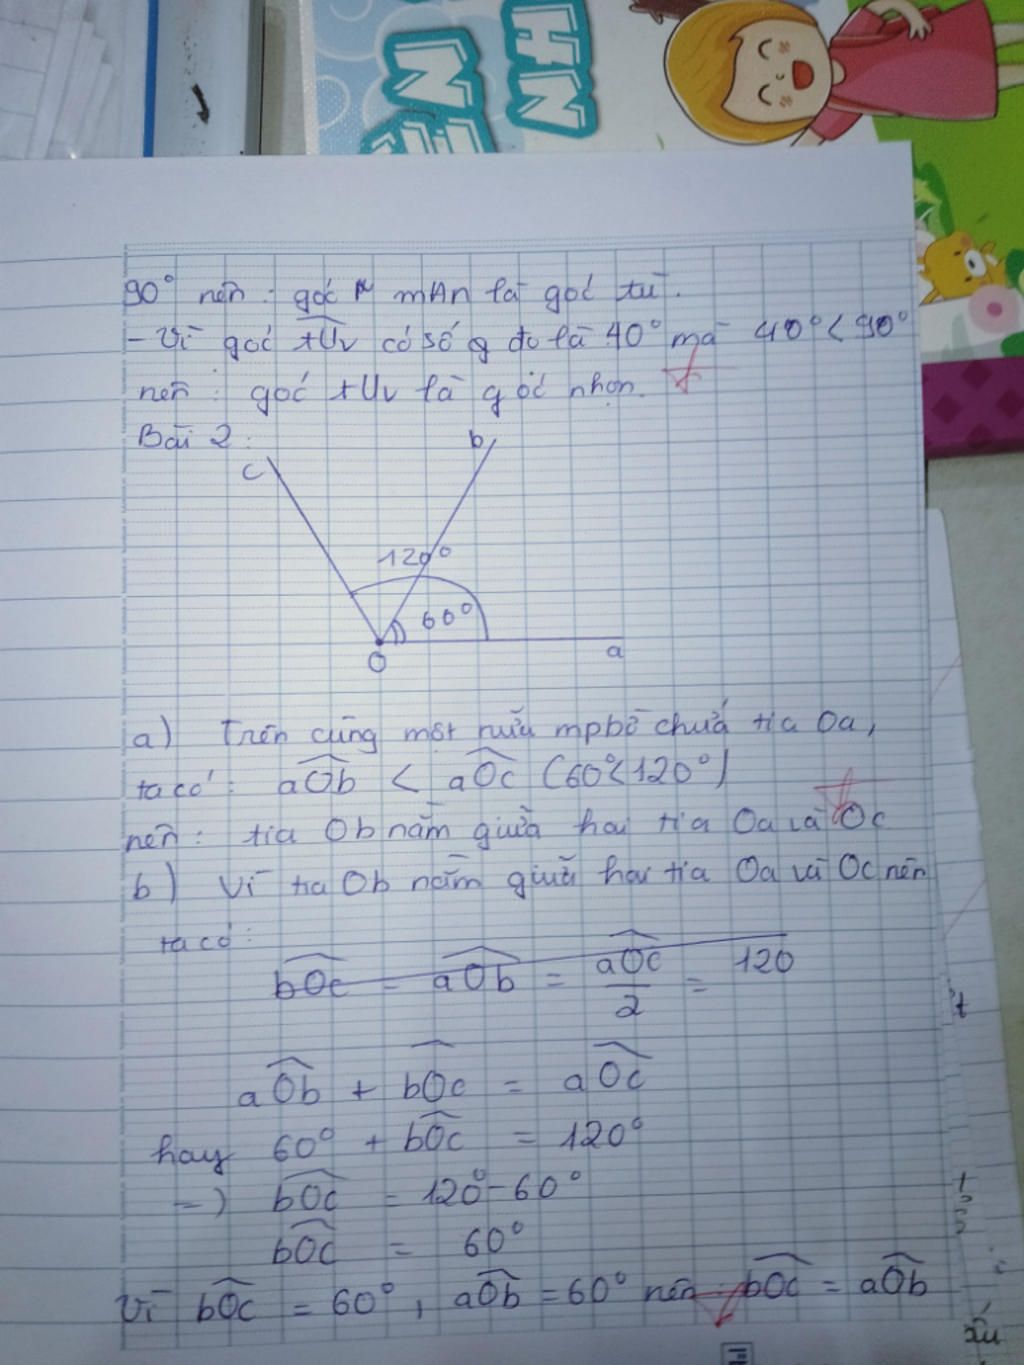 HN
N
90° nên : góc mAn là góc tù.
- Vì góc tUv có số đo là 40° mà 40° < 90°
nên : góc tUv là góc nhọn.
Bài 2 :
c b
120°
60°
O a
a) Trên cùng một nửa mp bờ chứa tia Oa,
ta có : aOb < aOc (60° < 120°)
nên : tia Ob nằm giữa hai tia Oa và Oc
b) Vì tia Ob nằm giữa hai tia Oa và Oc nên
ta có :
bOc = aOb = aOc/2 = 120
aOb + bOc = aOc
hay 60° + bOc = 120°
=) bOc = 120° - 60°
bOc = 60°
Vì bOc = 60°, aOb = 60° nên bOc = aOb